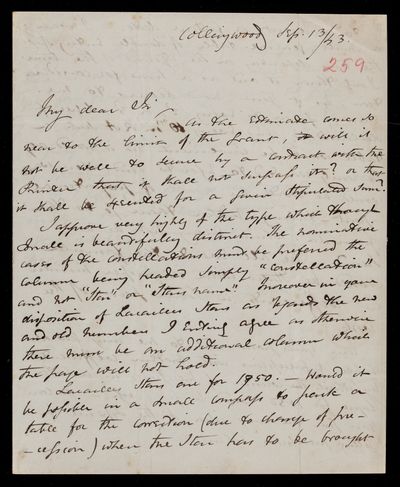 Collingwood Sep. 13/43.
259
My dear Sir
as the Estimate comes so
near to the limit of the Grant will it
not be well to secure by a contract with the
Printer that it shall not surpass it? or that
it shall be executed for a Given Stipulated Sum?
I approve very highly of the type which though
small is beautifully distinct. The nominative
cases of the constellations must be preferred the
column being headed simply "Constellation"
and not "Star" or "Stars name". Moreover in your
disposition of Lacailles Stars as regards the new
and old numbers I entirely agree as otherwise
there must be an additional column which
the page will not hold.
Lacailles Stars are for 1750. — Would it
be possible in a small compass to give a
table for the correction (due to change of pre-
-cession) when the Star has to be brought